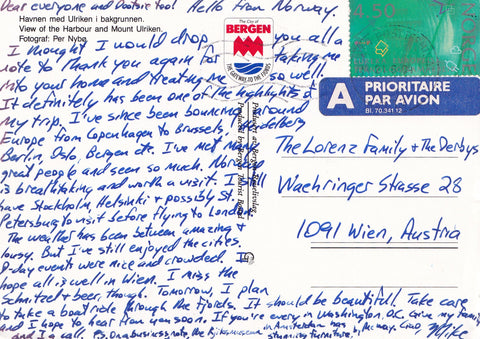 Dear everyone and Doctore too! Hello from Norway.
Havnen med Ulriken i bakgrunnen.
View of the Harbour and Mount Ulriken.
Fotograf: Per Nybø.
I thought I would drop you all a
note to thank you again for taking me
into your home and treating me so well.
It definitely has been one of the highlights of
my trip. I've since been bouncing around
Europe from Copenhagen to Brussels, Heidelberg
Berlin, Oslo, Bergen etc. I've met many
great people and seen so much. Norway
is breathtaking and worth a visit. I still
have Stockholm, Helsinki + possibly St.
Petersburg to visit before flying to London.
The weather has been between amazing +
lousy. But I've still enjoyed the cities.
D-day events were nice and crowded. I
hope all is well in Wien. I miss the
Schnitzel + beer, though. Tomorrow, I plan
to take a boat ride through the fjords. It should be beautiful. Take care
and I hope to hear from you soon. If you're every in Washington, D.C. give my family
and I a call. P.S. On a business note, the in Amsterdam has stunning furniture, by the way. Ciao, Mike
The City of
BERGEN
THE GATEWAY TO THE FJORDS
4.50
NORGE
A PRIORITAIRE
PAR AVION
Bl. 70.341 12
The Lorenz Family + The Derbys
Waehringer Strasse 28
1091 Wien, Austria